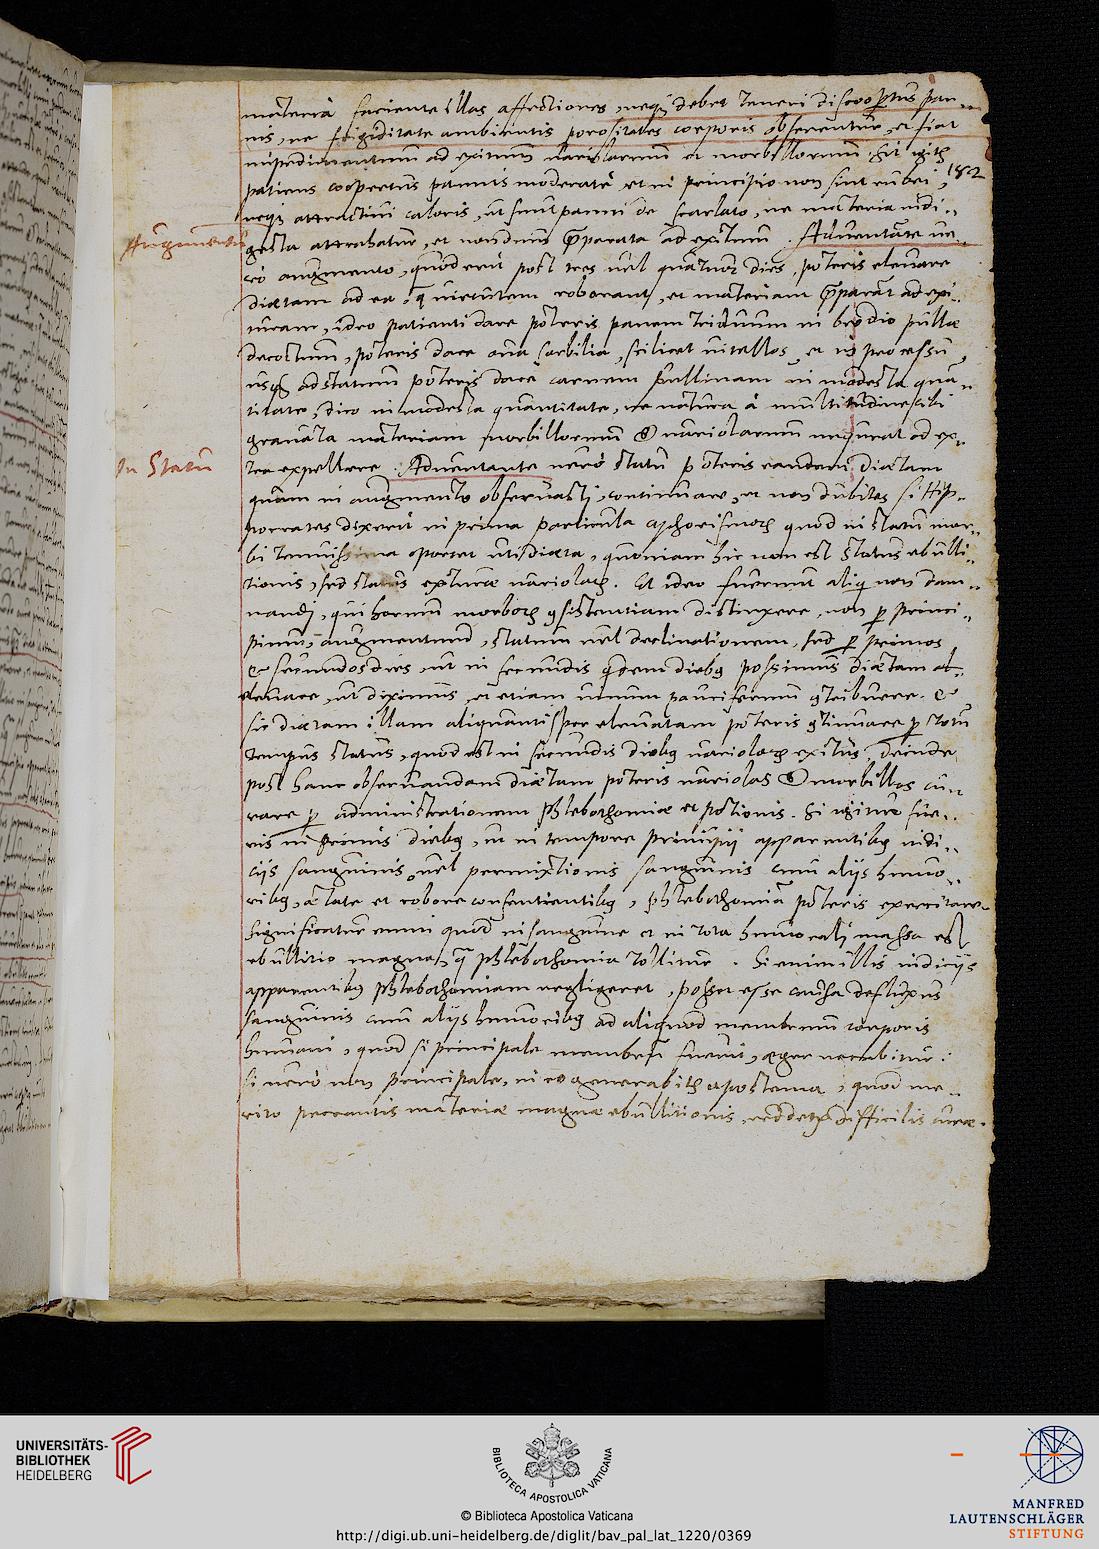 materia faciente illas affectiones, neq; debet teneri discoopertus pan-
nis, ne frigiditate ambientis porositates corporis obserentur, et fiat
impedimentum ad exitum variolarum et morbillorum. Sit igitr
patiens coopertus pannis moderatè, et in principio non sint rubei, 182
neq; attractivi caloris, ut sunt panni de scarlato, ne materia indi-
Augmentū gesta attrahatur, et nondum p̄parata ad exitum. Adventāte ve-
rò augmento, quod erit post tres vel quatuor dies, poteris elevare
diætam ad ea, q̄ virtutem roborant, et materiam p̄parāt ad exi-
turam, ideo patienti dare poteris panem triduum in brodio pullæ
decoctum, poteris dare ova sorbilia, scilicet vitellos, et in processu,
usq; ad statum poteris dare carnem pullinam in modesta quā-
titate, dico in modesta quantitate, ne natura à multitudine cibi
gravata materiam morbillorum & variolarum nequeat ad ex-
In Statu tra expellere. Adventante verò statu poteris eandem diætam
quam in augmento observasti, continuare, et non dubites si Hip-
pocrates dixerit in prima particula aphorismorꝫ quod in statu mor-
bi tenuissima oportet uti diæta, quoniam hic non est status ebulli-
tionis, sed status exituræ variolarꝫ. Et ideo fuerunt aliqi non dam-
nandi, qui horum morborꝫ 9sistentiam distinxere, non p princi-
pium, augmentum, statum vel declinationem, sed p primos
& secundos dies, ut in secundis q̇dem diebꝫ possimus diætam al-
levare, ut diximus, et etiam vinum pauciferum 9tribuere. &
sic diætam illam aliquantisper elevatam poteris 9tinuare p totū
tempus status, quod est in secundis diebꝫ variolarꝫ exitus, deinde
post hanc observandam diætam poteris variolas & morbillos cu-
rare p administrationem phlebothomiæ et potionis. Si igitur fue-
ris in primis diebꝫ, ut in tempore principij apparentibꝫ indi-
cijs sanguinis, vel permixtionis sanguinis cum alijs humo-
ribꝫ, ætate et robore consentientibꝫ, phlebothomiā poteris exercitare
Significatur enim quod in sanguine et in tota humorali massa est
ebullitio magna, q̄ phlebothomia tollitur. Si enim illis indicijs
apparentibꝫ phlebothomiam negligeret, posset esse causa defluxus
sanguinis cum alijs humoribꝫ ad aliquod membrum corporis
humani, quod si principale membrū fuerit, æger necabitur:
si verò non principale, in eo generabitꝫ apostema, quod me-
rito peccantis materiæ magnæ ebullitionis, reddetꝫ difficilis curæ.
UNIVERSITÄTS-
BIBLIOTHEK
HEIDELBERG
BIBLIOTECA APOSTOLICA VATICANA
© Biblioteca Apostolica Vaticana
http://digi.ub.uni-heidelberg.de/diglit/bav_pal_lat_1220/0369
MANFRED
LAUTENSCHLÄGER
STIFTUNG